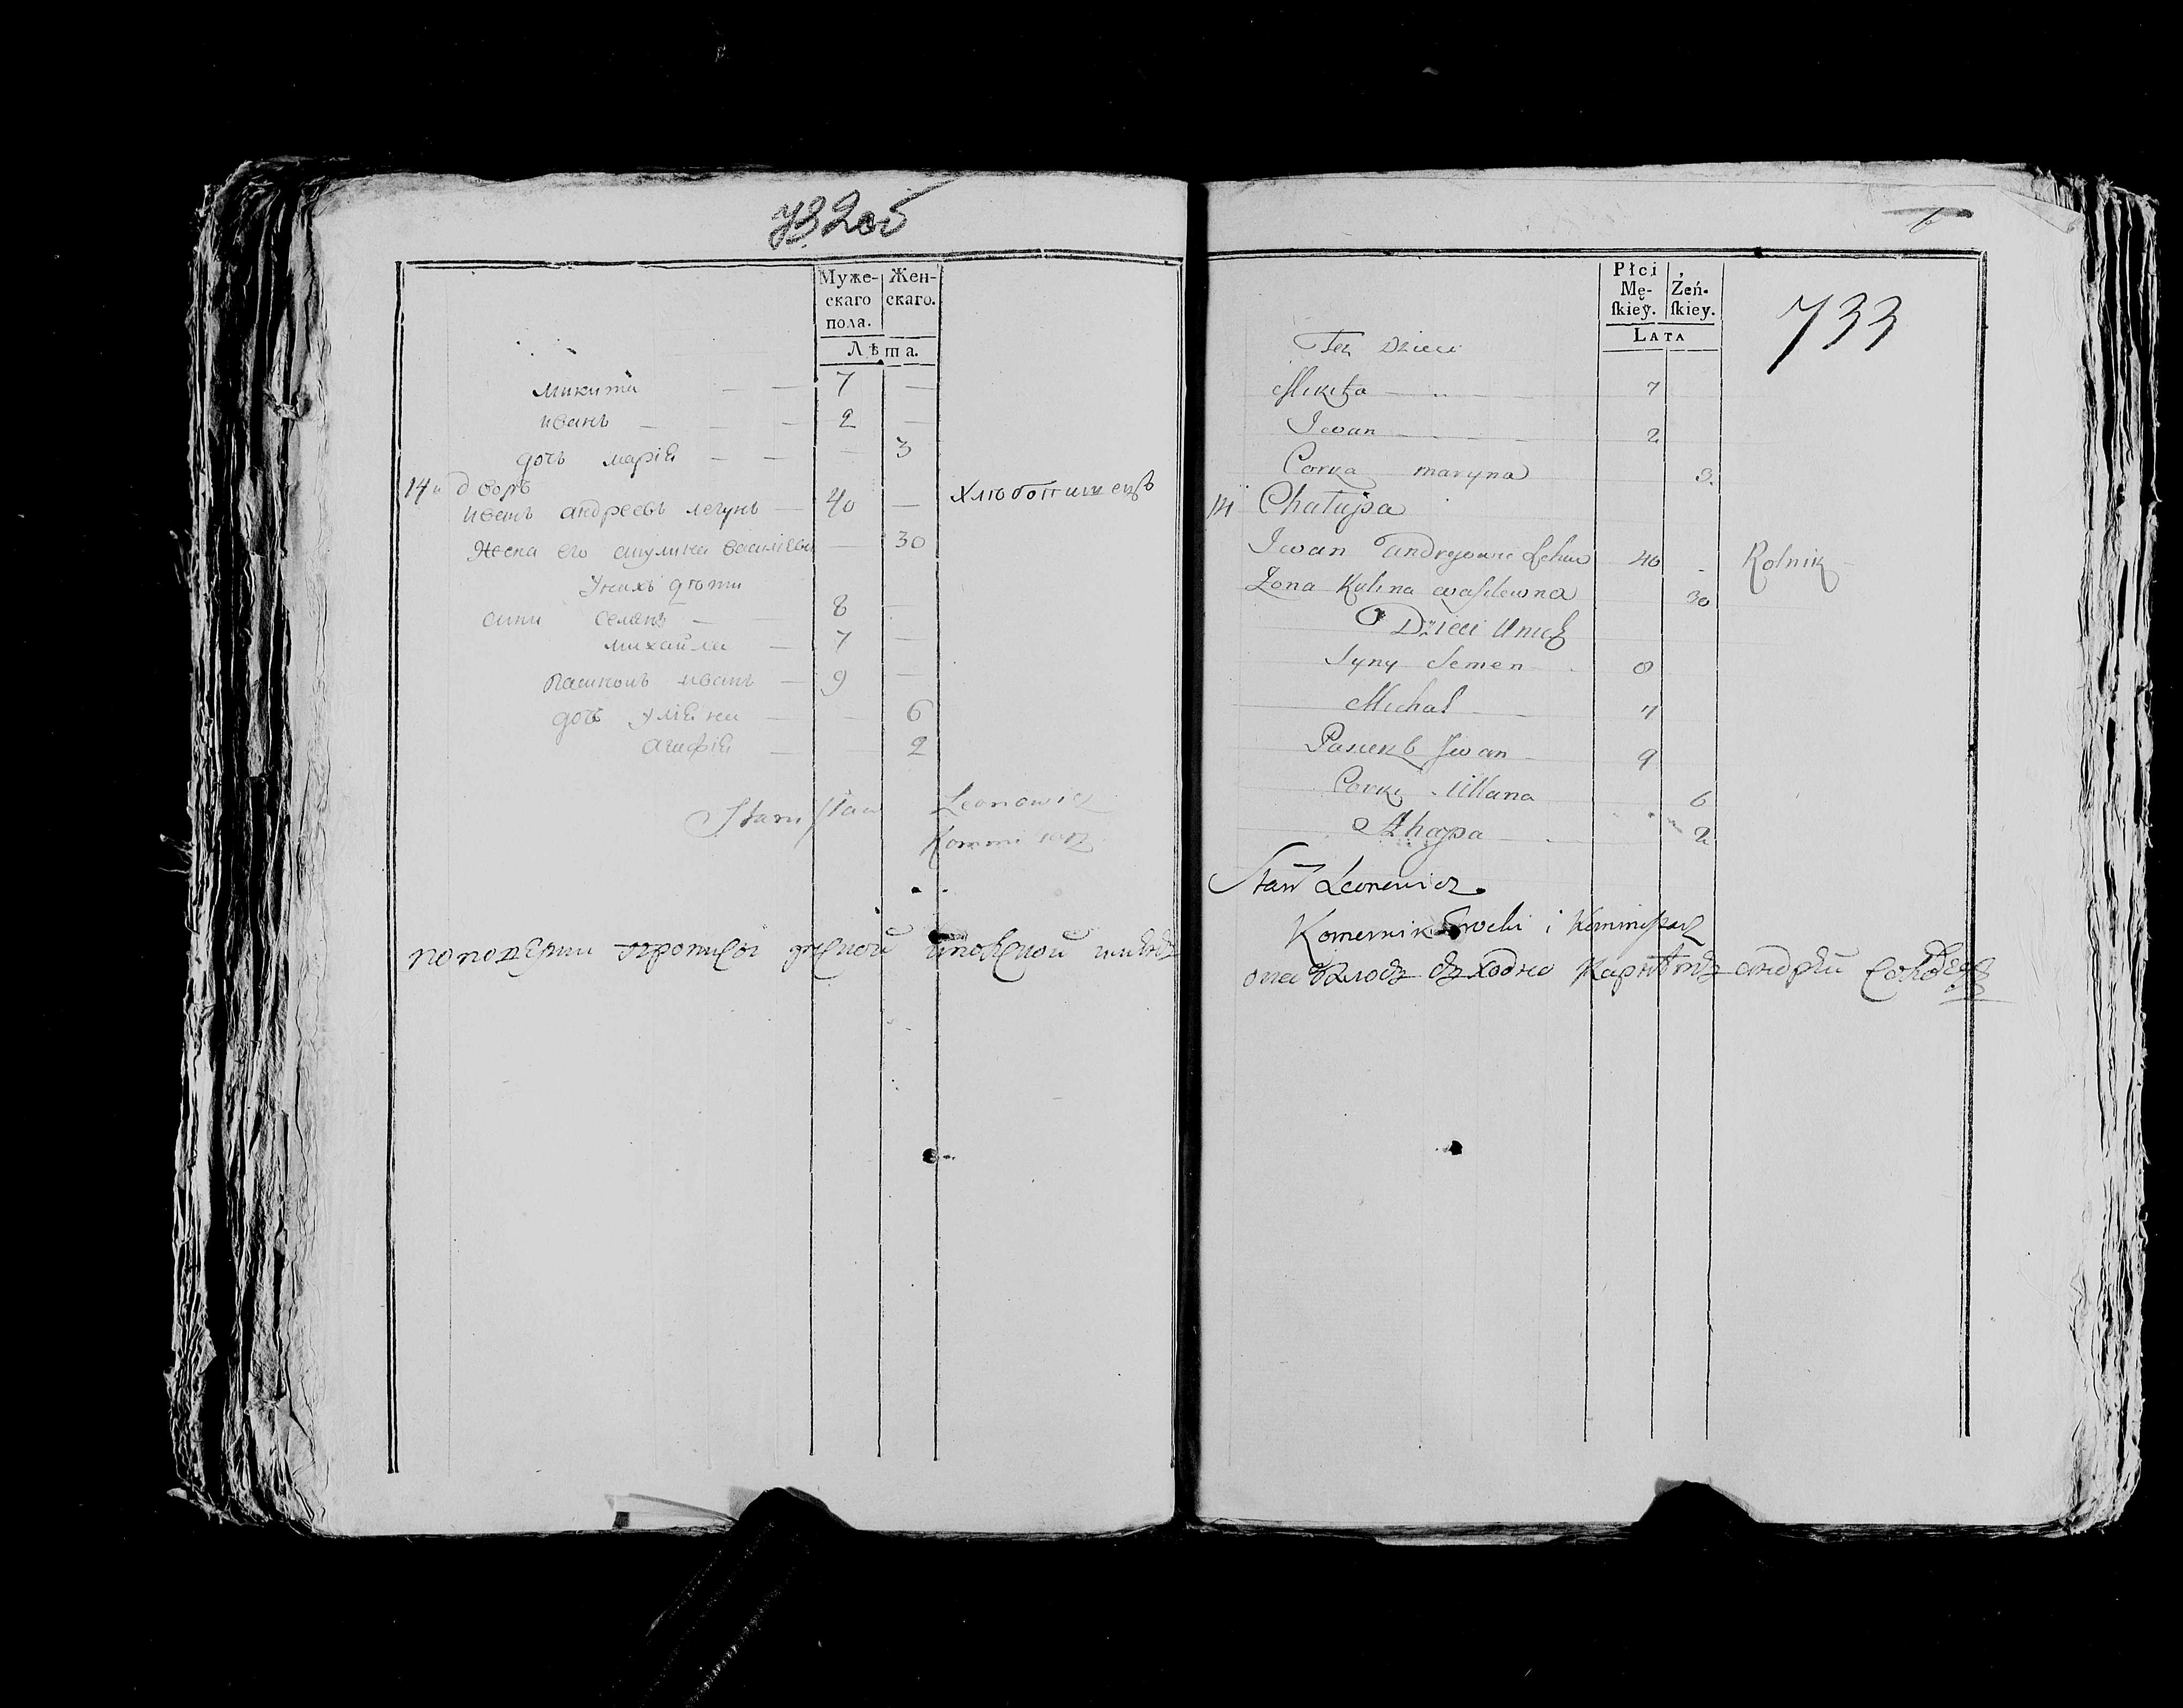 732 об
Муже-
скаго
пола.
Жен-
скаго.
Лѣта.
микита — — 7 —
иванъ — — — 2 —
дочь марія — — — 3
14й дворъ
иванъ андреевъ легунъ — 40 — Хлюбопашецъ
Жена его акулина василіева — 30
У нихъ дѣти
сини семенъ — 8 —
михайла — 7 —
пасинокъ иванъ — 9 —
дочь Уліяна — — 6
агафія — — 2
Stanisław Leonowicz
Płci
Mę-
skiey.
Żeń-
skiey.
Lata
733
6
Tez Dzieci
Mikita 7
Iwan 2
Corka maryna 3
14 Chałupa
Iwan Andrejowic Lehun 40 - Rolnik
Zona Kulina wasilewna 30
Dzieci Unich
Syny Semen 8
Michal 7
Pasierb Jwan 9
Corki Ullana 6
Ahapa 2
Stan Leonowicz
Komornik i Kommisarz
андрей